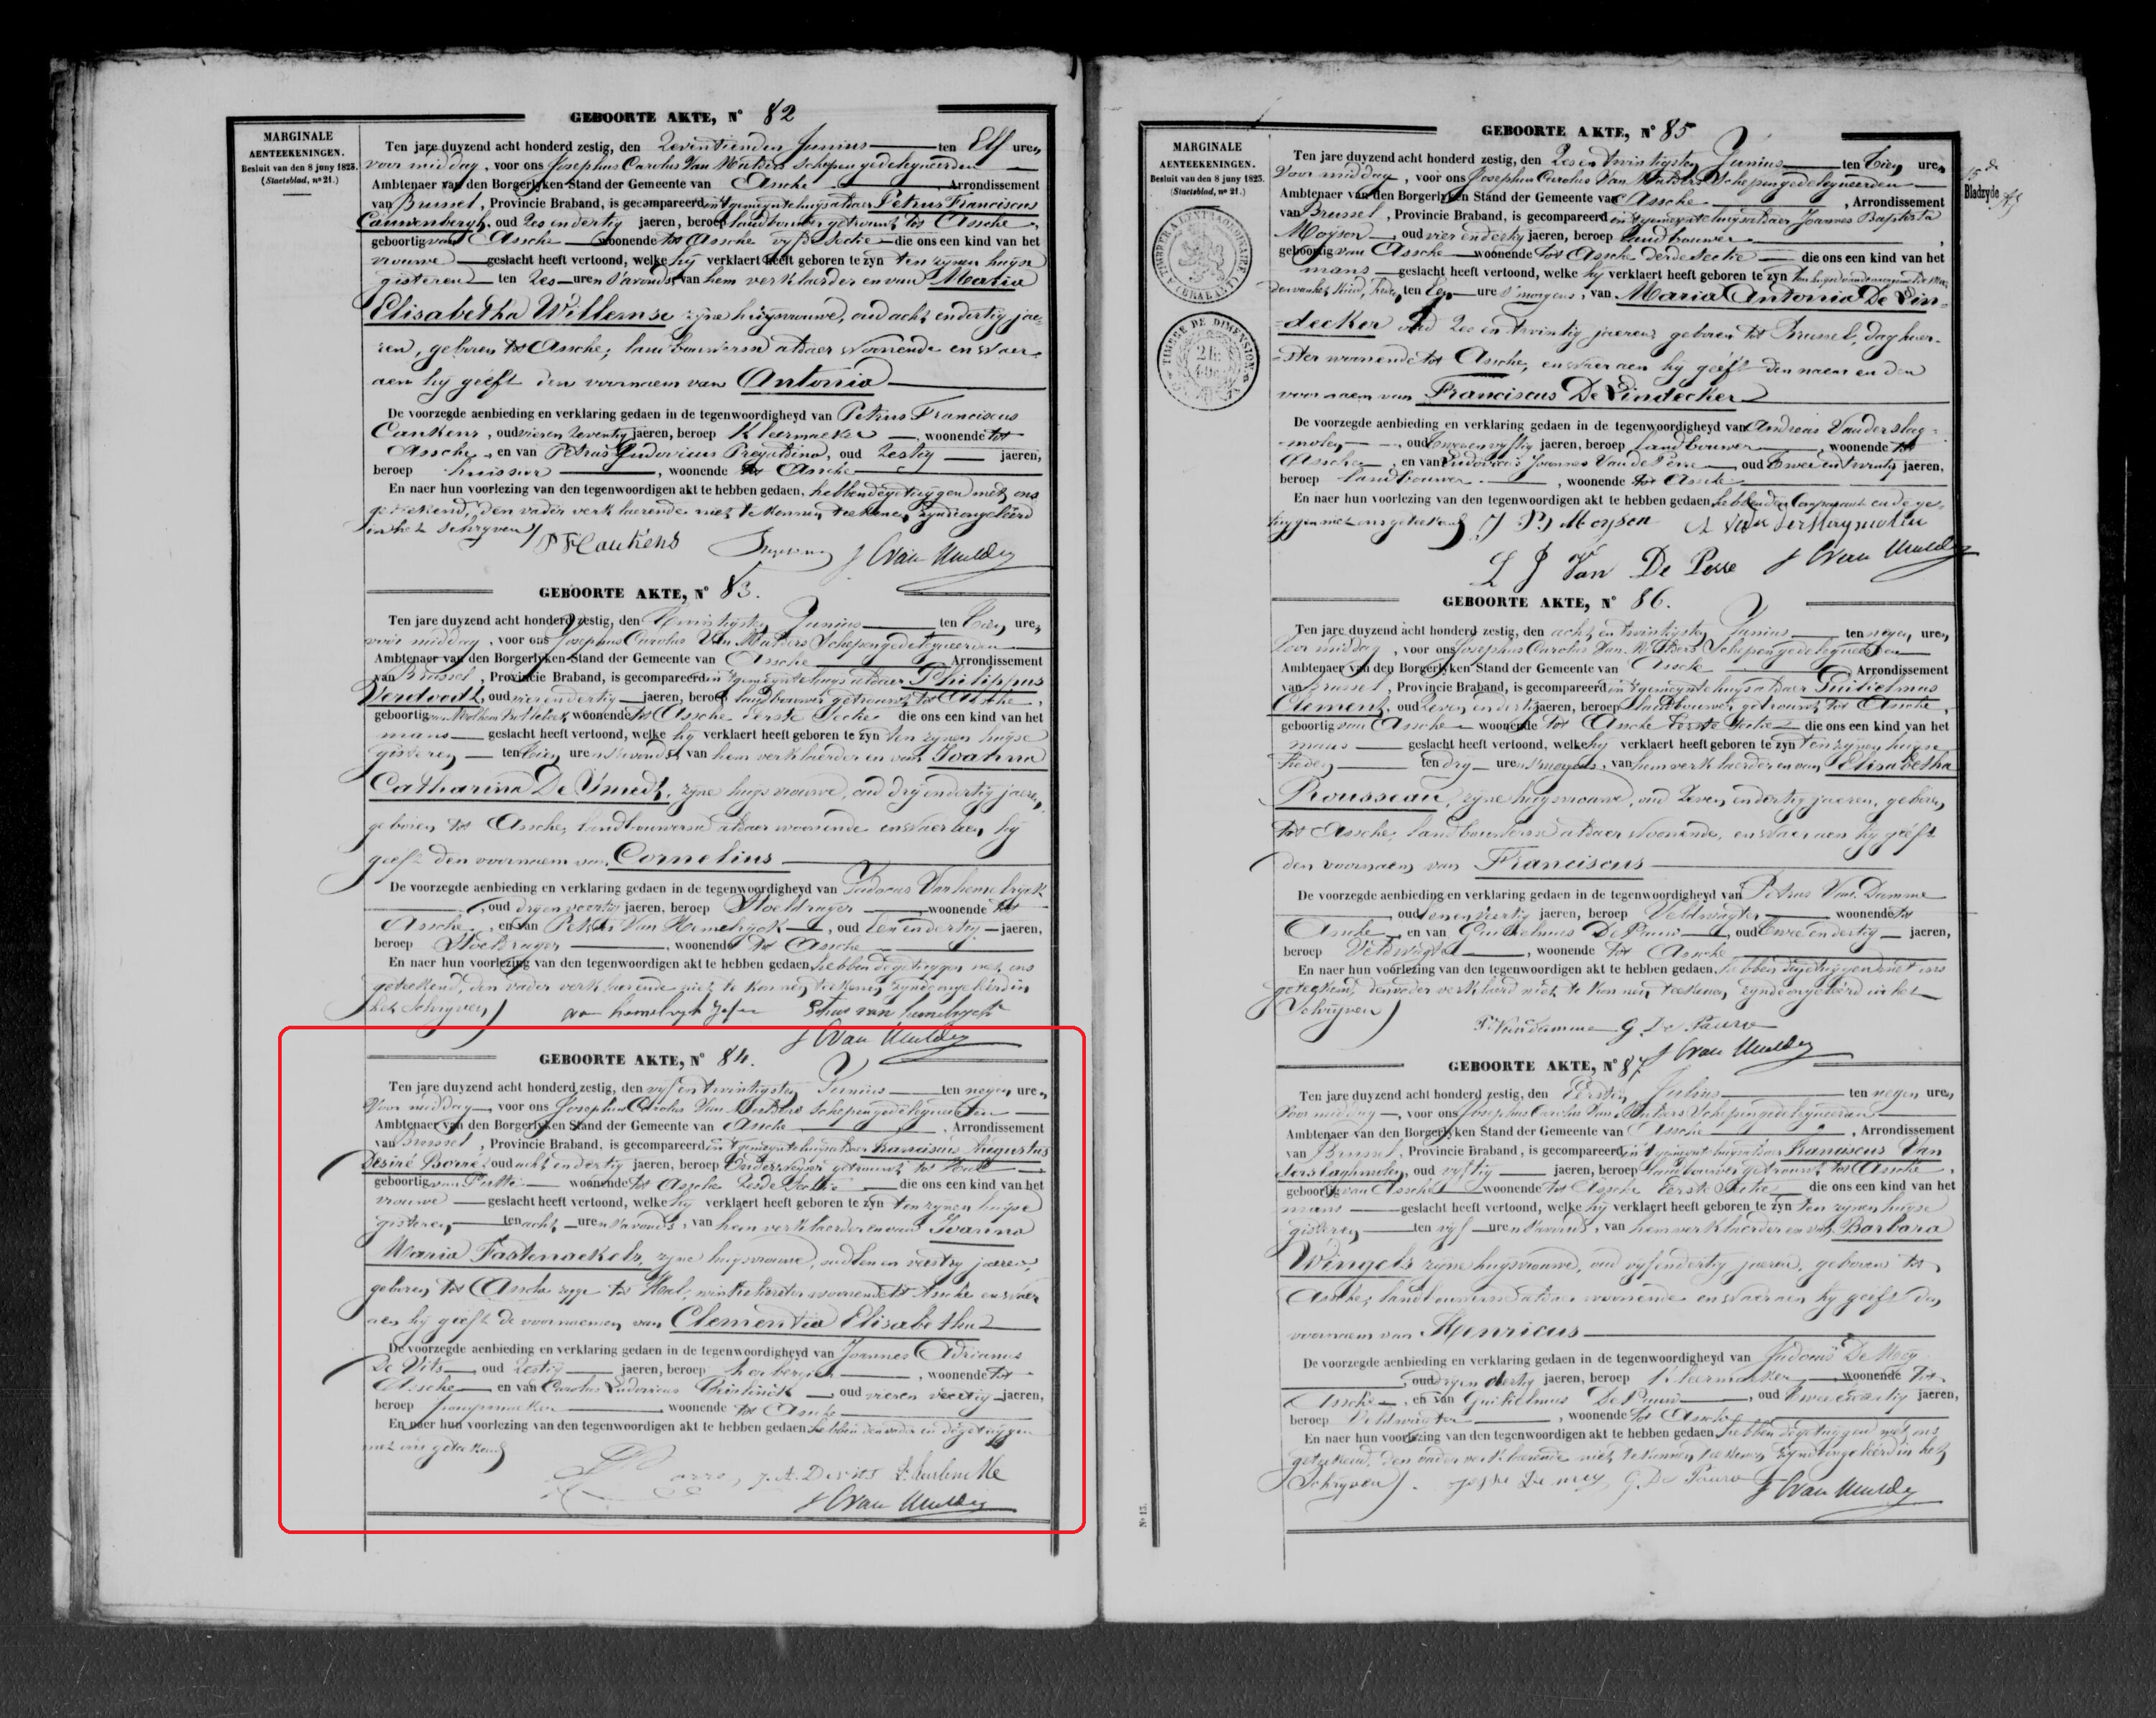 GEBOORTE AKTE, N° 82
MARGINALE
AENTEEKENINGEN.
Besluit van den 8 juny 1823.
(Staetsblad, n° 21.)
Ten jare duyzend acht honderd zestig, den Zeventienden Junius ten Elf uren
voor middag, voor ons Josephus Carolus Van Mulders Schepen gedelegueerden
Ambtenaer van den Borgerlyken Stand der Gemeente van Assche, Arrondissement
van Brussel, Provincie Braband, is gecompareerd in 't gemeyntehuys aldaer Petrus Franciscus
Cauwenbergh, oud Zes en dertig jaeren, beroep landbouwer getrouwt tot Assche,
geboortig van Assche woonende tot Assche vyfde Sectie die ons een kind van het
vrouwe geslacht heeft vertoond, welke hy verklaert heeft geboren te zyn ten zynen huyse
gisteren ten Zes uren s'avonds, van hem verklaerder en van Maria
Elisabetha Willemse zyne huysvrouwe, oud acht en dertig jae-
ren, geboren tot Assche, landbouwersse aldaer woonende en waer-
aen hy geeft den voornaem van Antonia
De voorzegde aenbieding en verklaring gedaen in de tegenwoordigheyd van Petrus Franciscus
Caukens, oud vier en zeventig jaeren, beroep Kleermaeker, woonende tot
Assche, en van Petrus Ludovicus, oud Zestig jaeren,
beroep huissier, woonende tot Assche
En naer hun voorlezing van den tegenwoordigen akt te hebben gedaen, hebben de getuygen met ons
geteekend, den vader verklaerende niet te konnen teekenen, zynde ongeleerd
in het schryven
P F Caukens J C Van Mulders
GEBOORTE AKTE, N° 83.
Ten jare duyzend acht honderd zestig, den Twintigsten Junius ten tien uren
voor middag, voor ons Josephus Carolus Van Mulders Schepen gedelegueerden
Ambtenaer van den Borgerlyken Stand der Gemeente van Assche Arrondissement
van Brussel, Provincie Braband, is gecompareerd in 't gemeyntehuys aldaer Philippus
Verdoodt, oud vier en dertig jaeren, beroep landbouwer getrouwt tot Assche,
geboortig van woonende tot Assche Eerste Sectie die ons een kind van het
mans geslacht heeft vertoond, welke hy verklaert heeft geboren te zyn ten zynen huyse
gisteren ten tien uren s'avonds, van hem verklaerder en van Joanna
Catharina De Smedt, zyne huysvrouwe, oud dry en dertig jaeren,
geboren tot Assche, landbouwersse aldaer woonende en waer aen hy
geeft den voornaem van Cornelius
De voorzegde aenbieding en verklaring gedaen in de tegenwoordigheyd van Judocus Van hemelryck
, oud dry en veertig jaeren, beroep Stoeldrayer, woonende tot
Assche, en van Petrus Van Hemelryck, oud Een en dertig jaeren,
beroep Stoeldrayer, woonende tot Assche
En naer hun voorlezing van den tegenwoordigen akt te hebben gedaen, hebben de getuygen met ons
geteekend, den vader verklaerende niet te konnen teekenen, zynde ongeleerd in
het Schryven
van hemelryck Petrus van hemelryck
J C Van Mulders
GEBOORTE AKTE, N° 84.
Ten jare duyzend acht honderd zestig, den vyf en twintigsten Junius ten negen uren
Voor middag, voor ons Josephus Carolus Van Mulders Schepen gedelegueerden
Ambtenaer van den Borgerlyken Stand der Gemeente van Assche, Arrondissement
van Brussel, Provincie Braband, is gecompareerd in 't gemeyntehuys aldaer Franciscus Augustus
Desiré Borré, oud acht en dertig jaeren, beroep Onderwyser getrouwt tot Hall
geboortig van Putte woonende tot Assche Zesde Sectie die ons een kind van het
vrouwe geslacht heeft vertoond, welke hy verklaert heeft geboren te zyn ten zynen huyse
gisteren ten acht uren s'avonds, van hem verklaerder en van Joanna
Maria Fastenaekels, zyne huysvrouwe, oud Een en veertig jaeren,
geboren tot Assche tot Hal, winkelierster woonende tot Assche en waer
aen hy geeft de voornaemen van Clementia Elisabetha
De voorzegde aenbieding en verklaring gedaen in de tegenwoordigheyd van Joannes Adrianus
De Vits, oud Zestig jaeren, beroep herbergier, woonende tot
Assche en van Carolus Ludovicus, oud vier en veertig jaeren,
beroep, woonende tot Assche
En naer hun voorlezing van den tegenwoordigen akt te hebben gedaen, hebben den vader en de getuygen
met ons geteekend
J. A. De Vits
J C Van Mulders
GEBOORTE AKTE, N° 85
MARGINALE
AENTEEKENINGEN.
Besluit van den 8 juny 1823.
(Staetsblad, n° 21.)
15de
Bladzyde
TIMBRE A L'EXTRAORDINAIRE
(BRABANT)
TIMBRE DE DIMENSION
Ten jare duyzend acht honderd zestig, den Zes en twintigsten Junius ten tien uren
Voor middag, voor ons Josephus Carolus Van Mulders Schepen gedelegueerden
Ambtenaer van den Borgerlyken Stand der Gemeente van Assche, Arrondissement
van Brussel, Provincie Braband, is gecompareerd in 't gemeyntehuys aldaer Joannes Baptista
Moyson, oud vier en dertig jaeren, beroep landbouwer,
geboortig van Assche woonende tot Assche derde Sectie die ons een kind van het
mans geslacht heeft vertoond, welke hy verklaert heeft geboren te zyn
ten een ure s'morgens, van Maria Antonia De Lin-
decker, oud Zes en twintig jaeren, geboren tot Brussel, daghuer-
ster woonende tot Assche, en waer aen hy geeft den naem en den
voornaem van Franciscus De Lindecker
De voorzegde aenbieding en verklaring gedaen in de tegenwoordigheyd van Andreas Vanderslag-
molen, oud twee en vyftig jaeren, beroep landbouwer, woonende tot
Assche, en van Ludovicus Joannes Van de Perre, oud twee en twintig jaeren,
beroep landbouwer, woonende tot Assche
En naer hun voorlezing van den tegenwoordigen akt te hebben gedaen, hebben den Comparant en de ge-
tuygen met ons geteekend J B Moyson A Vanderslagmolen
L J Van De Perre J C Van Mulders
GEBOORTE AKTE, N° 86.
Ten jare duyzend acht honderd zestig, den acht en twintigsten Junius ten negen uren
Voor middag, voor ons Josephus Carolus Van Mulders Schepen gedelegueerden
Ambtenaer van den Borgerlyken Stand der Gemeente van Assche Arrondissement
van Brussel, Provincie Braband, is gecompareerd in 't gemeyntehuys aldaer Guilielmus
Clement, oud Zeven en dertig jaeren, beroep landbouwer getrouwt tot Assche,
geboortig van Assche woonende tot Assche Eerste Sectie die ons een kind van het
mans geslacht heeft vertoond, welke hy verklaert heeft geboren te zyn ten zynen huyse
heden ten dry uren s'morgens, van hem verklaerder en van Elisabetha
Rousseau, zyne huysvrouwe, oud Zeven en dertig jaeren, geboren
tot Assche, landbouwersse aldaer woonende, en waer aen hy geeft
den voornaem van Franciscus
De voorzegde aenbieding en verklaring gedaen in de tegenwoordigheyd van Petrus Van Damme
, oud Een en veertig jaeren, beroep Veldwagter woonende tot
Assche, en van Guilielmus De Pauw, oud twee en dertig jaeren,
beroep Veldwagter, woonende tot Assche
En naer hun voorlezing van den tegenwoordigen akt te hebben gedaen, hebben de getuygen met ons
geteekend, den vader verklaerd niet te konnen teekenen, zynde ongeleerd in het
Schryven
P. Van Damme G. De Pauw
J C Van Mulders
GEBOORTE AKTE, N° 87
Ten jare duyzend acht honderd zestig, den Eersten Julius ten negen uren
Voor middag, voor ons Josephus Carolus Van Mulders Schepen gedelegueerden
Ambtenaer van den Borgerlyken Stand der Gemeente van Assche, Arrondissement
van Brussel, Provincie Braband, is gecompareerd in 't gemeyntehuys aldaer Franciscus Van
derslaghmolen, oud vyftig jaeren, beroep landbouwer getrouwt tot Assche,
geboortig van Assche woonende tot Assche Eerste Sectie die ons een kind van het
mans geslacht heeft vertoond, welke hy verklaert heeft geboren te zyn ten zynen huyse
gisteren ten vyf uren s'avonds, van hem verklaerder en van Barbara
Wingels zyne huysvrouwe, oud vyf en dertig jaeren, geboren tot
Assche, landbouwersse aldaer woonende en waer aen hy geeft den
voornaem van Henricus
De voorzegde aenbieding en verklaring gedaen in de tegenwoordigheyd van Judocus De Mey
, oud dry en dertig jaeren, beroep Kleermaeker, woonende tot
Assche, en van Guilielmus De Pauw, oud twee en dertig jaeren,
beroep Veldwagter, woonende tot Assche
En naer hun voorlezing van den tegenwoordigen akt te hebben gedaen, hebben de getuygen met ons
geteekend, den vader verklaerende niet te konnen teekenen, zynde ongeleerd in het
Schryven. De mey G. De Pauw J C Van Mulders
N° 15.